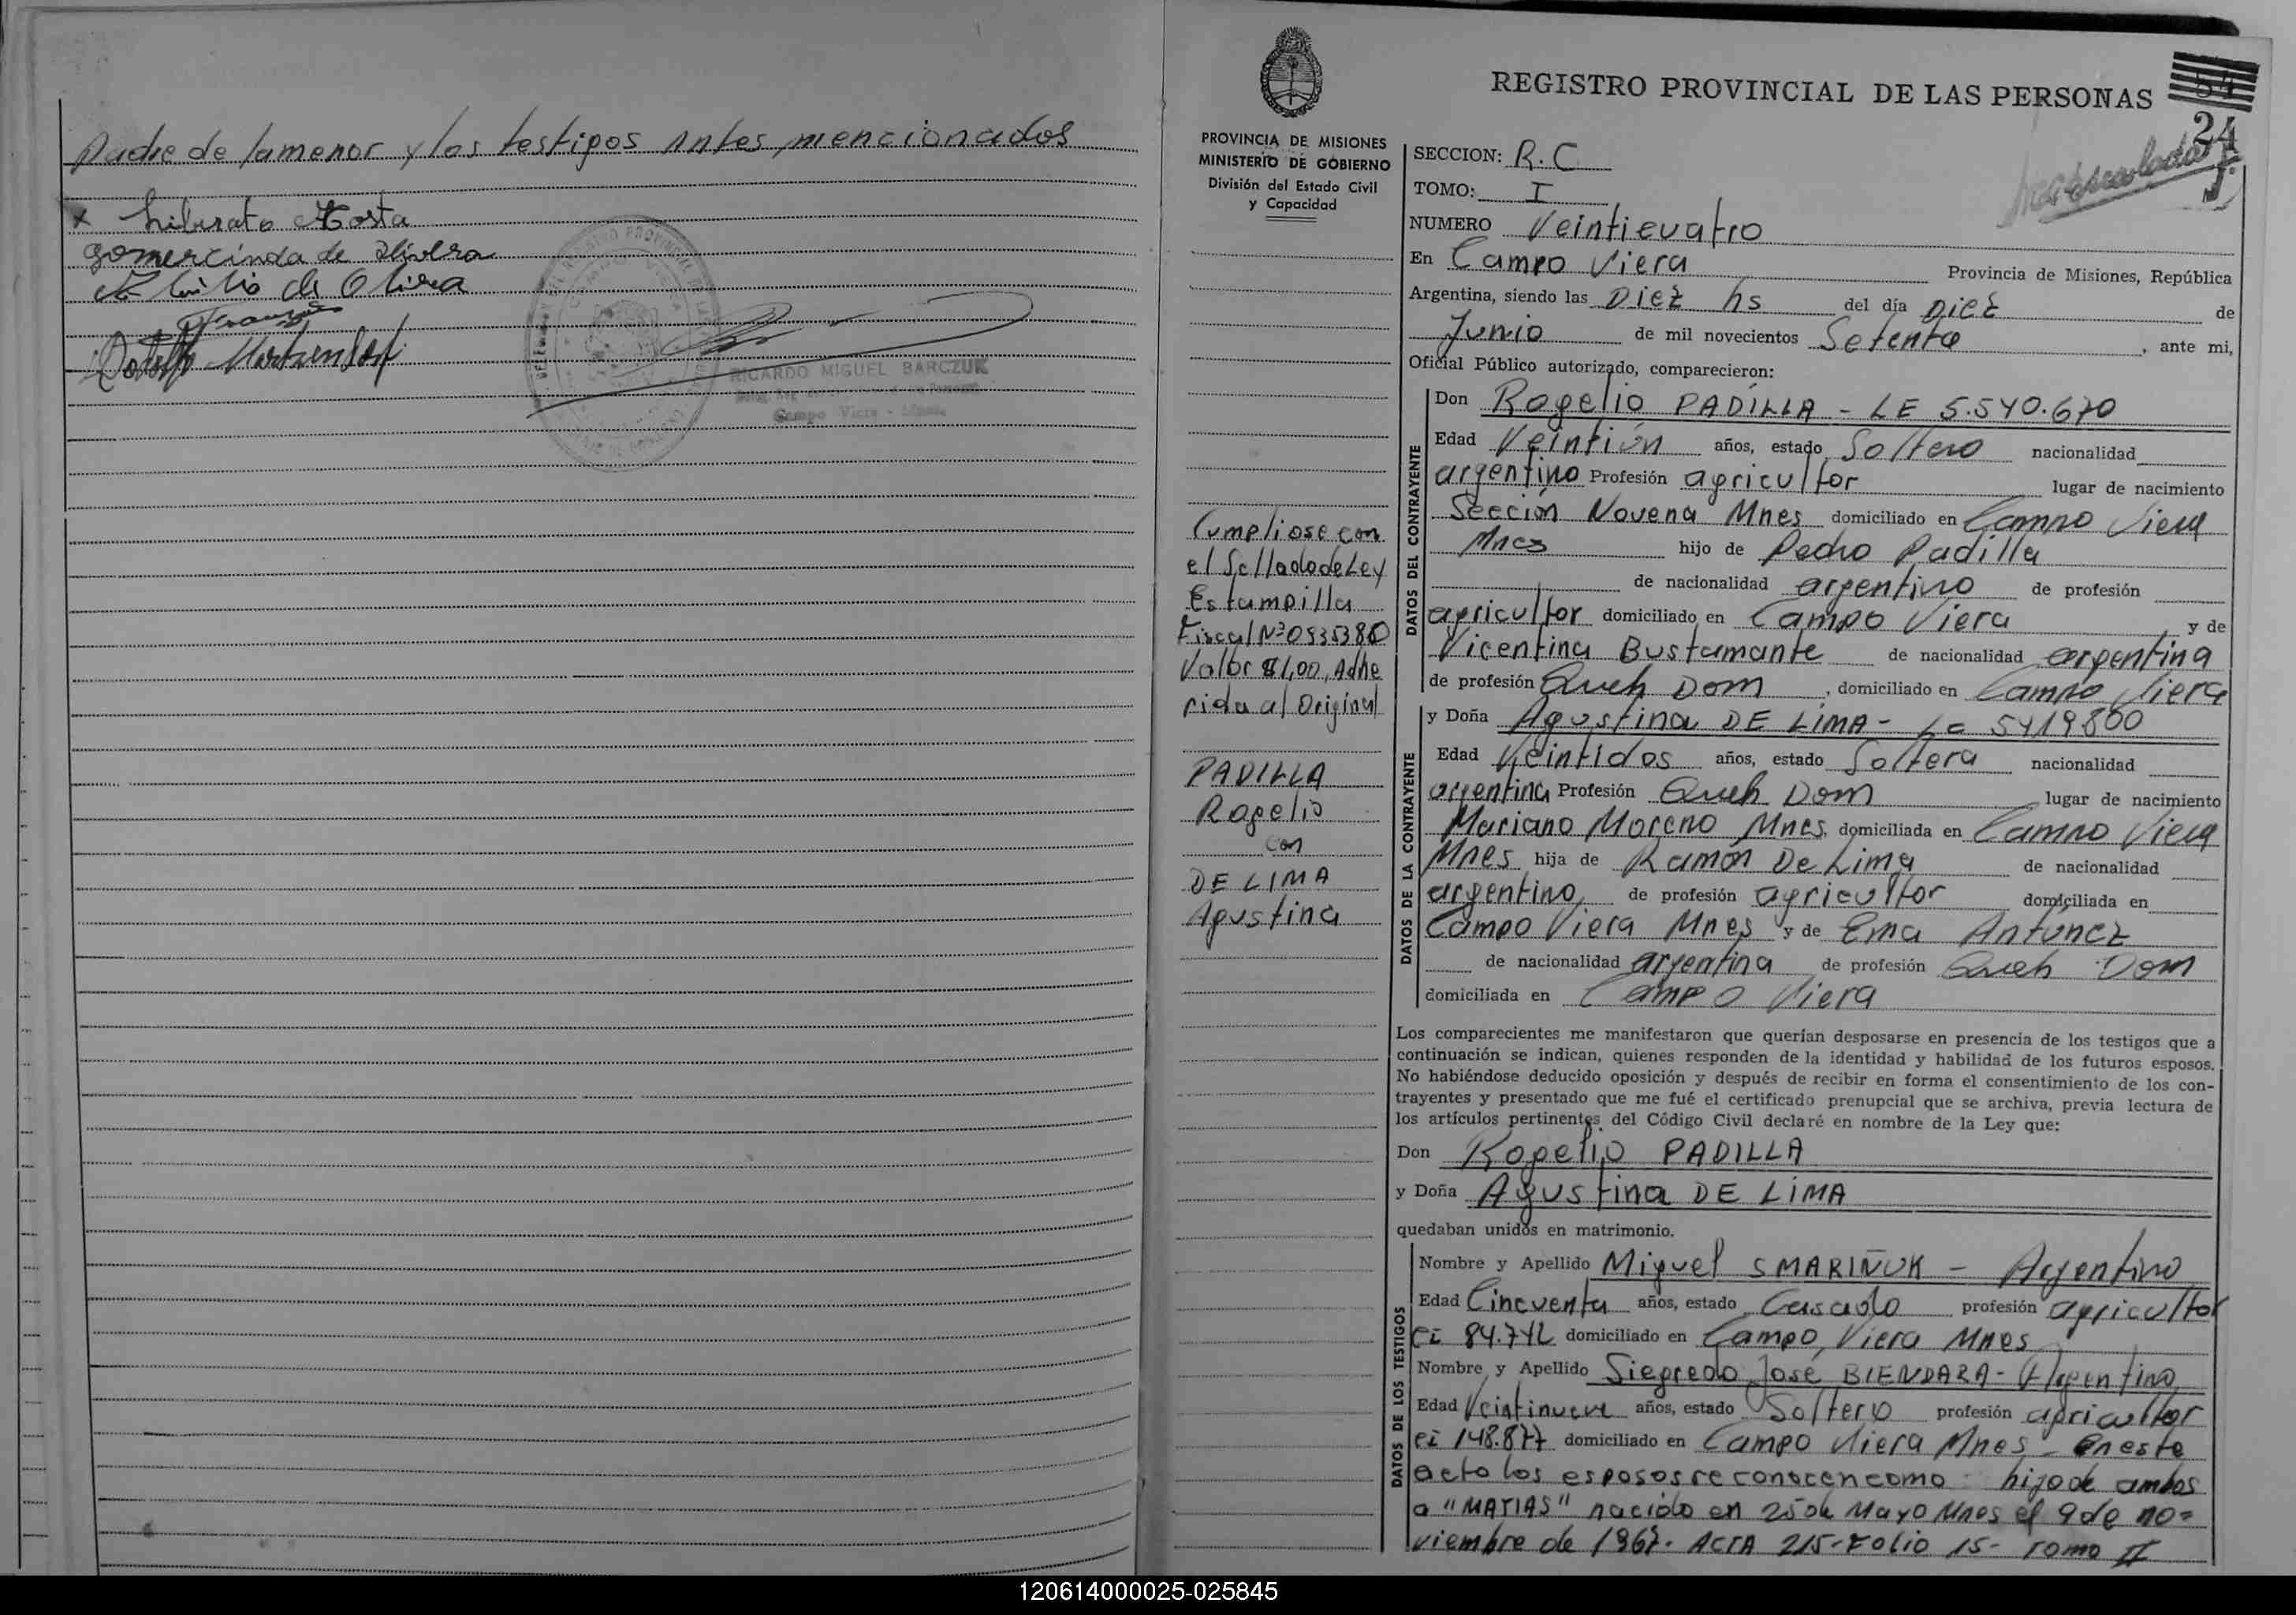 Padre de la menor y los testigos antes mencionados
Liberato Acosta
gomercinda de Olivera
de Olivera
RICARDO MIGUEL BARCZUK
Campo Viera - Mnes.
REGISTRO PROVINCIAL DE LAS PERSONAS
54
24
PROVINCIA DE MISIONES
MINISTERIO DE GOBIERNO
División del Estado Civil
y Capacidad
Cumpliose con
el Sellado de Ley
Estampilla
Fiscal Nº 0535380
Valor $1,00, Adhe
rida al Original
PADILLA
Rogelio
con
DE LIMA
Agustina
SECCION: R.C
TOMO: I
NUMERO Veinticuatro
En Campo Viera Provincia de Misiones, República
Argentina, siendo las Diez hs del día Diez de
Junio de mil novecientos Setenta, ante mi,
Oficial Público autorizado, comparecieron:
DATOS DEL CONTRAYENTE
Don Rogelio PADILLA - LE 5.540.670
Edad Veintiún años, estado Soltero nacionalidad
argentino Profesión agricultor lugar de nacimiento
Sección Novena Mnes domiciliado en Campo Viera
Mnes hijo de Pedro Padilla
de nacionalidad argentino de profesión
agricultor domiciliado en Campo Viera y de
Vicentina Bustamante de nacionalidad argentina
de profesión Queh Dom, domiciliado en Campo Viera
DATOS DE LA CONTRAYENTE
y Doña Agustina DE LIMA - Lc 5419800
Edad Veintidos años, estado Soltera nacionalidad
argentina Profesión Queh Dom lugar de nacimiento
Mariano Moreno Mnes. domiciliada en Campo Viera
Mnes hija de Ramón De Lima de nacionalidad
argentino, de profesión agricultor domiciliada en
Campo Viera Mnes y de Ema Antúnez
de nacionalidad argentina de profesión Queh Dom
domiciliada en Campo Viera
Los comparecientes me manifestaron que querían desposarse en presencia de los testigos que a
continuación se indican, quienes responden de la identidad y habilidad de los futuros esposos.
No habiéndose deducido oposición y después de recibir en forma el consentimiento de los con-
trayentes y presentado que me fué el certificado prenupcial que se archiva, previa lectura de
los artículos pertinentes del Código Civil declaré en nombre de la Ley que:
Don Rogelio PADILLA
y Doña Agustina DE LIMA
quedaban unidos en matrimonio.
DATOS DE LOS TESTIGOS
Nombre y Apellido Miguel SMARIÑUK - Argentino
Edad Cincuenta años, estado Casado profesión agricultor
ci 84.742 domiciliado en Campo Viera Mnes
Nombre y Apellido Siegredo José BIENDARA - Argentino
Edad Veintinueve años, estado Soltero profesión agricultor
ci 148.877 domiciliado en Campo Viera Mnes - En este
acto los esposos reconocen como hijo de ambos
a "MATIAS" nacido en 25 de Mayo Mnes el 9 de no=
viembre de 1967. ACTA 215 - Folio 15 - Tomo II
120614000025-025845